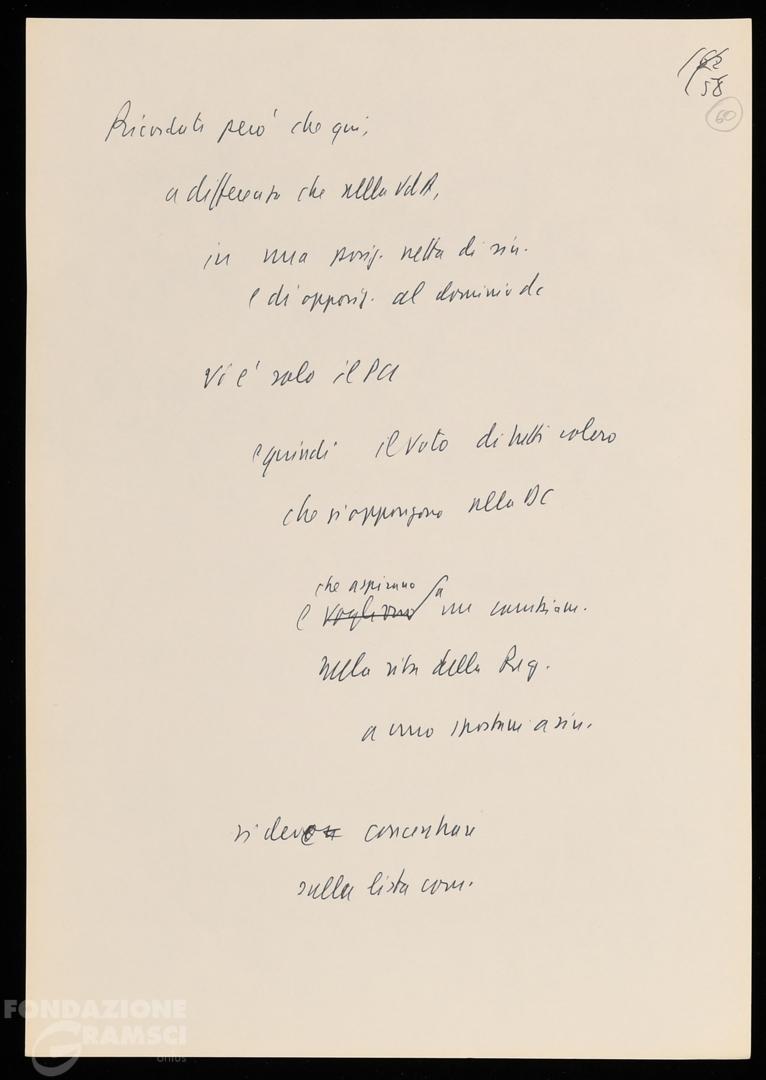 62
58
60
Ricordate però che qui,
a differenza che nella VdA,
in una posiz. netta di sin.
e di opposiz. al dominio dc
vi è solo il PCI
e quindi il voto di tutti coloro
che si oppongono alla DC
che aspirano a
e vogliono un cambiam.
nella vita della Reg.
a uno spostam a sin.
si deve concentrare
sulla lista com.
FONDAZIONE
GRAMSCI
onlus